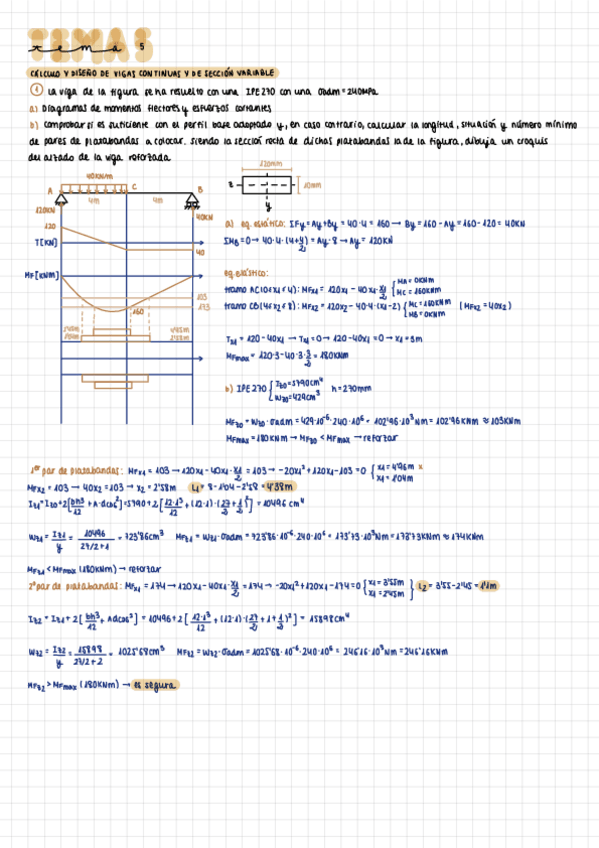 TEMAS
tema 5
CÁLCULO Y DISEÑO DE VIGAS CONTINUAS Y DE SECCIÓN VARIABLE
1 La viga de la figura se ha resuelto con una IPE 270 con una σadm = 240MPa
a) Diagramas de momentos flectores y esfuerzos cortantes
b) comprobar si es suficiente con el perfil base adoptado y, en caso contrario, calcular la longitud, situación y número mínimo
de pares de platabandas a colocar. siendo la sección recta de dichas platabandas la de la figura, dibuja un croquis
del alzado de la viga reforzada
40KN/m
A C B
4m 4m
120KN
40KN
120
T[KN]
40
MF[KNm]
103
173
160
120mm
z
10mm
y
a) eq. estático: ΣFy = Ay + By = 40·4 = 160 → By = 160 - Ay = 160 - 120 = 40KN
ΣMB = 0 → 40·4·(4+4/2) = Ay·8 → Ay = 120KN
eq. elástico:
tramo AC (0≤x1≤4): MFx1 = 120x1 - 40x1·x1/2 { MA = 0KNm MC = 160KNm
tramo CB (4≤x2≤8): MFx2 = 120x2 - 40·4·(x2-2) { MC = 160KNm MB = 0KNm (MFx2 = 40x2)
Tx1 = 120 - 40x1 → Tx1 = 0 → 120 - 40x1 = 0 → x1 = 3m
MFmax = 120·3 - 40·3·3/2 = 180KNm
b) IPE 270 { Iz0 = 5790cm⁴ Wz0 = 429cm³ h = 270mm
MFz0 = Wz0·σadm = 429·10⁻⁶·240·10⁶ = 102'96·10³Nm = 102'96KNm ≈ 103KNm
MFmax = 180KNm → MFz0 < MFmax → reforzar
1er par de platabandas: MFx1 = 103 → 120x1 - 40x1·x1/2 = 103 → -20x1² + 120x1 - 103 = 0 { x1 = 4'96m x x1 = 1'04m
MFx2 = 103 → 40x2 = 103 → x2 = 2'58m L1 = 8 - 1'04 - 2'58 = 4'38m
Iz1 = Iz0 + 2[bh³/12 + A·dcdg²] = 5790 + 2[12·1³/12 + (12·1)·(27/2+1/2)²] = 10496 cm⁴
Wz1 = Iz1/y = 10496/27/2+1 = 723'86cm³ MFz1 = Wz1·σadm = 723'86·10⁻⁶·240·10⁶ = 173'73·10³Nm = 173'73KNm ≈ 174KNm
MFz1 < MFmax (180KNm) → reforzar
2º par de platabandas: MFx1 = 174 → 120x1 - 40x1·x1/2 = 174 → -20x1² + 120x1 - 174 = 0 { x1 = 3'55m x1 = 2'45m } L2 = 3'55 - 2'45 = 1'1m
Iz2 = Iz1 + 2[bh³/12 + Adcdg²] = 10496 + 2[12·1³/12 + (12·1)·(27/2+1+1/2)²] = 15898cm⁴
Wz2 = Iz2/y = 15898/27/2+2 = 1025'68cm³ MFz2 = Wz2·σadm = 1025'68·10⁻⁶·240·10⁶ = 246'16·10³Nm = 246'16KNm
MFz2 > MFmax (180KNm) → es segura